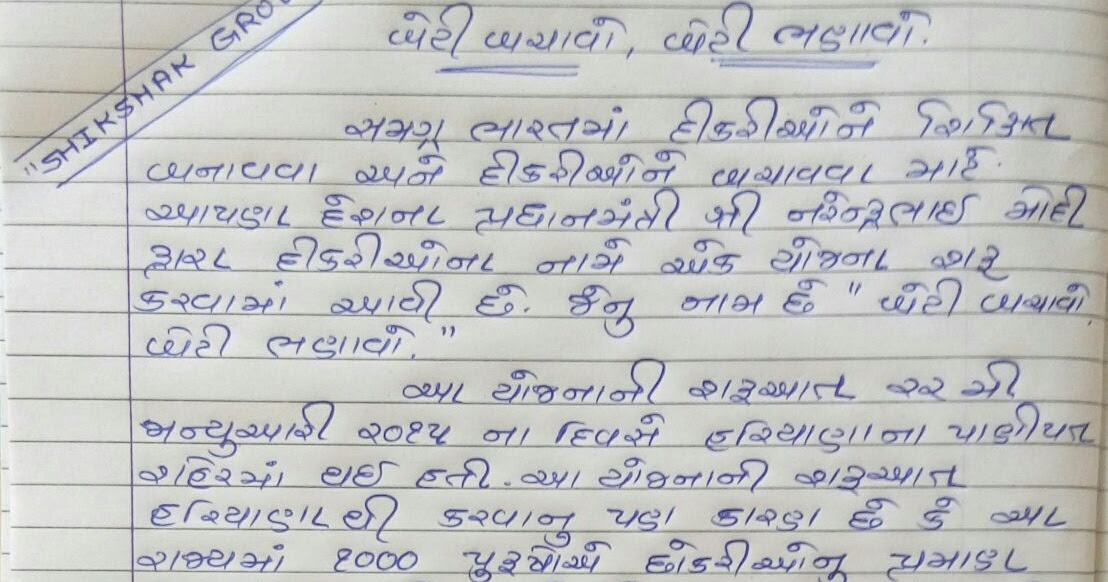 "SHIKSHAK GROU
બેટી બચાવો, બેટી ભણાવો.
સમગ્ર ભારતમાં દીકરીઓને શિક્ષિત
બનાવવા અને દીકરીઓને બચાવવા માટે
આપણા દેશના પ્રધાનમંત્રી શ્રી નરેન્દ્રભાઇ મોદી
દ્વારા દીકરીઓના નામે એક યોજના શરૂ
કરવામાં આવી છે. જેનુ નામ છે " બેટી બચાવો,
બેટી ભણાવો."
આ યોજનાની શરૂઆત ૨૨ મી
જાન્યુઆરી ૨૦૧૫ ના દિવસે હરિયાણાના પાણીપત
શહેરમાં થઇ હતી. આ યોજનાની શરૂઆત
હરિયાણાથી કરવાનુ પણ કારણ છે કે આ
રાજ્યમાં ૧000 પુરૂષોએ છોકરીઓનુ પ્રમાણ